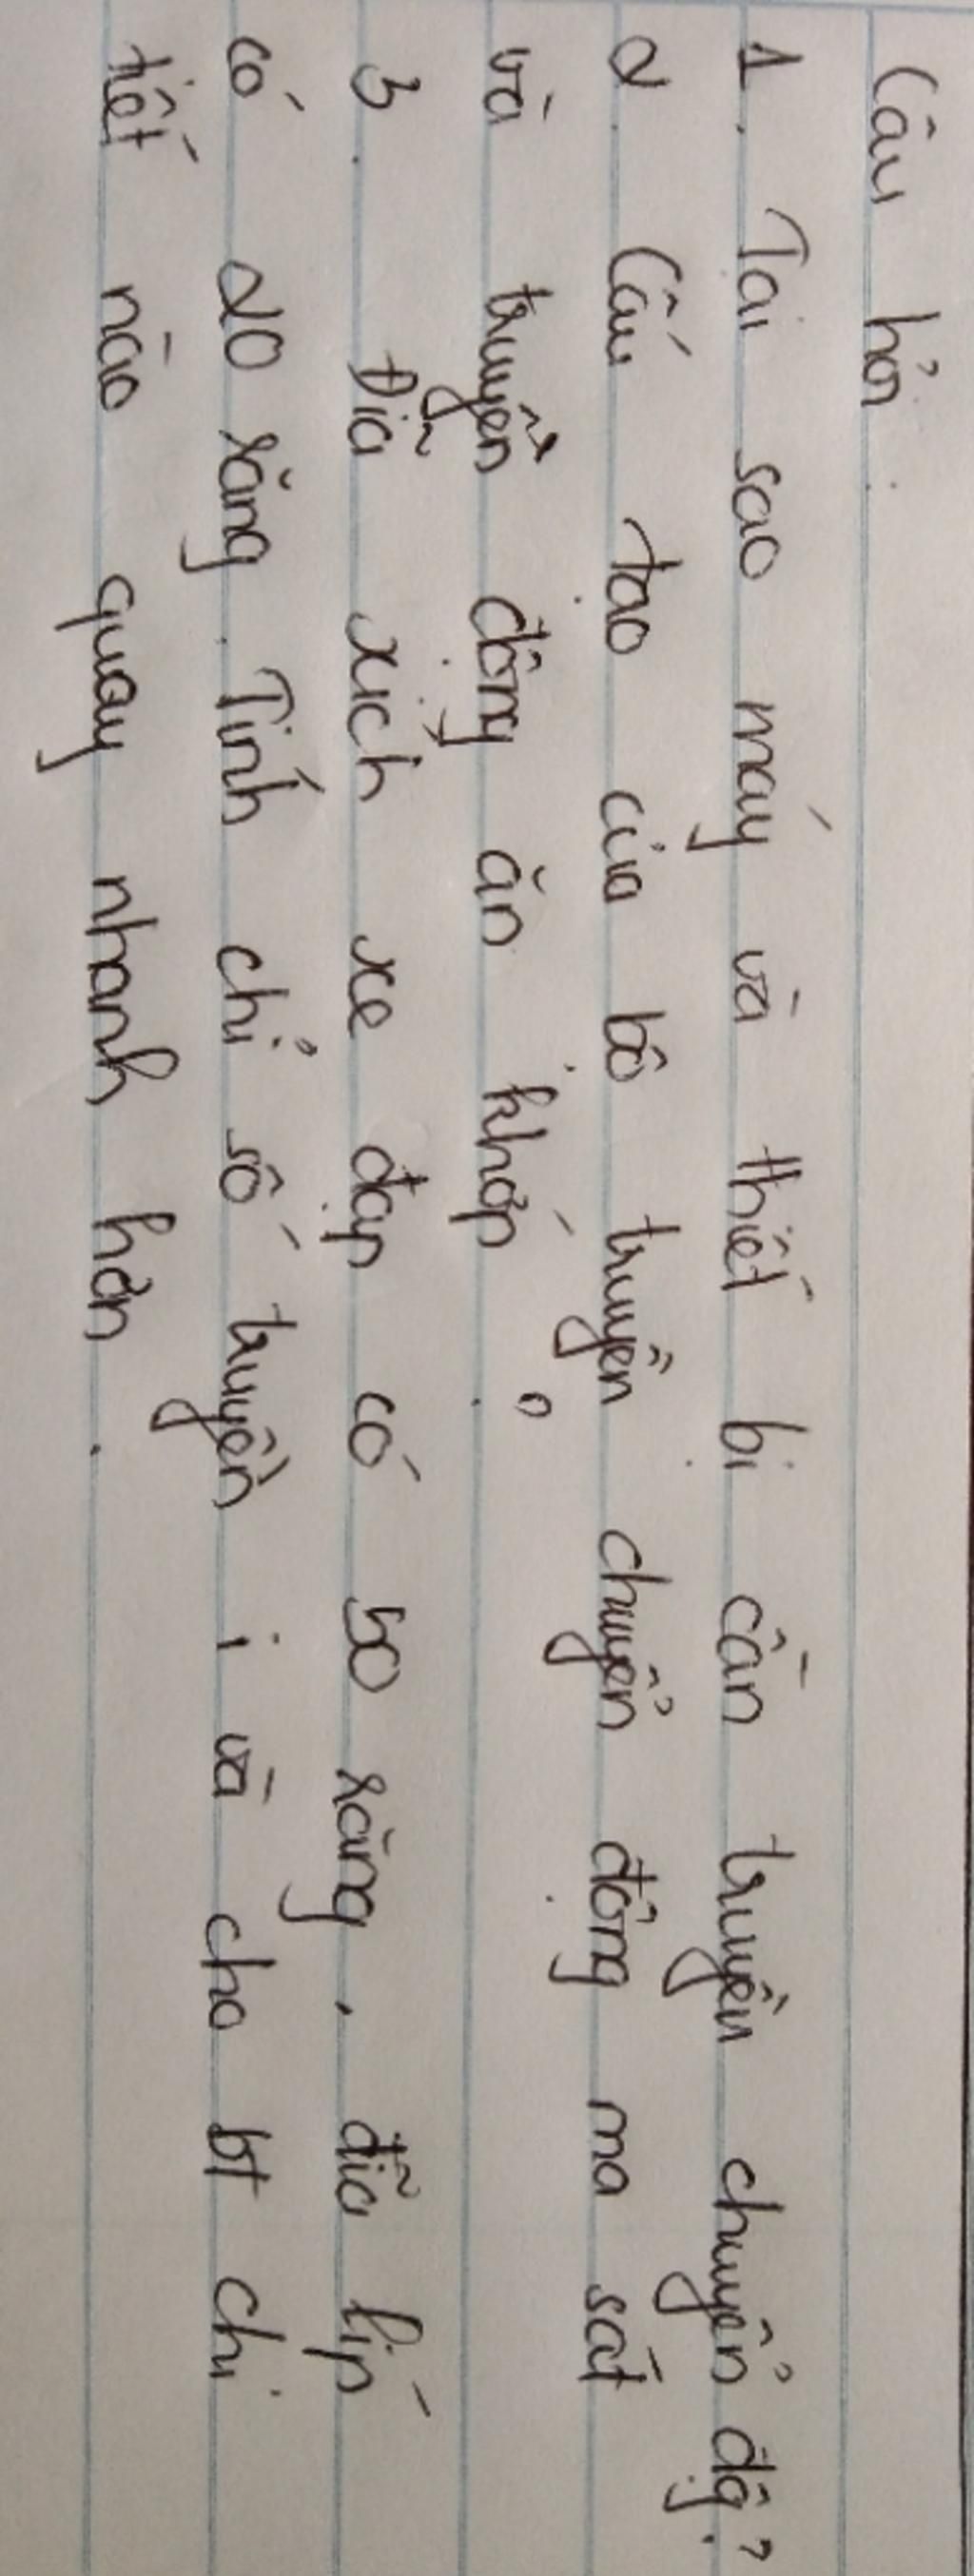 Câu hỏi :
1. Tai sao máy và thiết bị cần truyền chuyển đg?
2. Cấu tạo của bộ truyền chuyển động ma sát
và truyền động ăn khớp.
3. Đĩa xích xe đạp có 50 răng, đĩa líp
có 20 răng. Tính chỉ số truyền i và cho bt chi
tiết nào quay nhanh hơn.